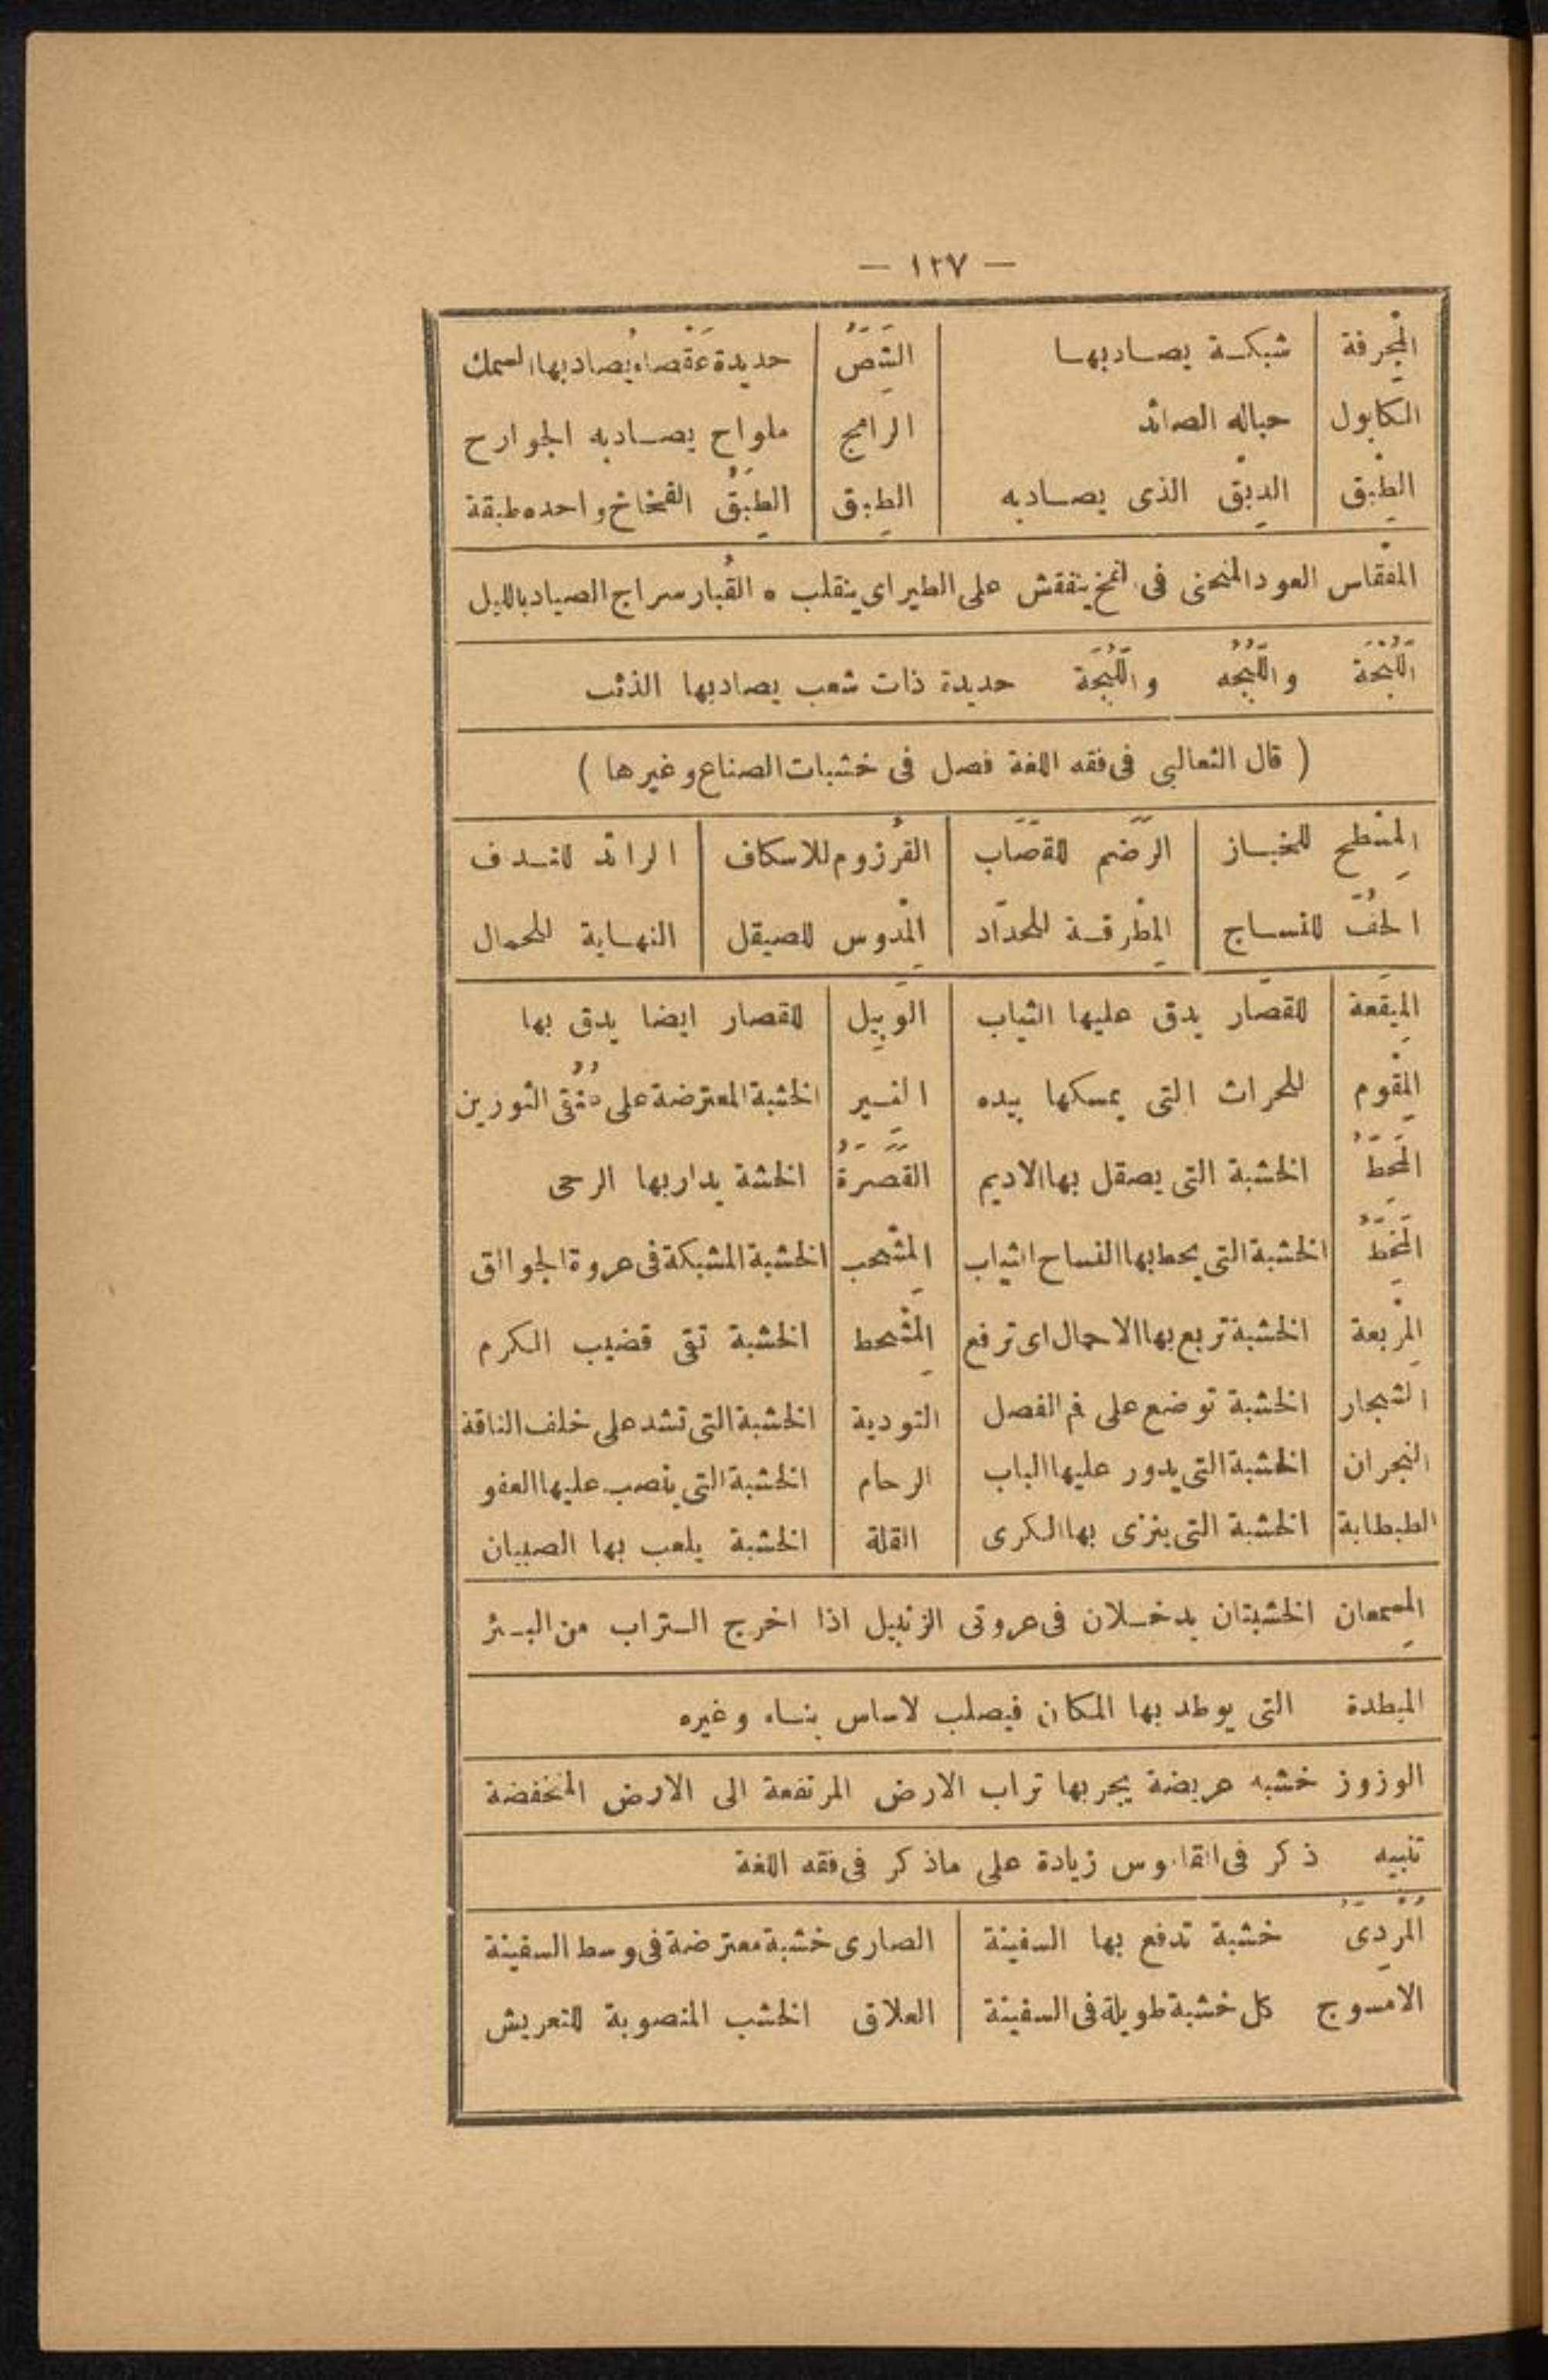 — ١٢٧ —
المِجْرفة شبكة يصاد بها الشَِصُّ حديدة عَقْصاء يُصاد بها السمك
الكابول حباله الصائد الرامج ملواح يصاد به الجوارح
الطِبْق الدِبْق الذى يصاد به الطِبق الطِبَقُ الفخاخ واحده طبقة
المفْقاس العود المنحنى فى الفخ ينفقش على الطير اى ينقلب ه القُبار سراج الصياد بالليل
اللُّبْجَة واللُّبُجه واللَّبَجَة حديدة ذات شعب يصاد بها الذئب
( قال الثعالبى فى فقه اللغة فصل فى خشبات الصناع وغيرها )
المِسْطح للخباز الرَضَم للقصَّاب القُرزوم للاسكاف الرائد للندف
الحَفُّ للنساج المِطْرقة للحدّاد المِدْوس للصيقل النهاية للحمال
المِيقَعة للقصّار يدق عليها الثياب الوَبِيل للقصار ايضا يدق بها
المِقْوم للحراث التى يمسكها بيده النِير الخشبة المعترضة على عُنُقى الثورين
المِحَطُّ الخشبة التى يصقل بها الاديم القَصَرَةُ الخشة يدار بها الرحى
المِخَطُّ الخشبة التى يحط بها النساج الثياب المِشْحب الخشبة المشبكة فى عروة الجوالق
المِرْبعة الخشبة تربع بها الاحمال اى ترفع المِشْحط الخشبة تقى قضيب الكرم
الشجار الخشبة توضع على فم الفصل التودية الخشبة التى تشد على خلف الناقة
النجران الخشبة التى يدور عليها الباب الرحام الخشبة التى ينصب عليها العفو
الطبطابة الخشبة التى ينزى بها الكرى القلة الخشبة يلعب بها الصبيان
المِسمعان الخشبتان يدخلان فى عروتى الزنبيل اذا اخرج التراب من البئر
الميطدة التى يوطد بها المكان فيصلب لاساس بناء وغيره
الوزوز خشبه عريضة يجر بها تراب الارض المرتفعة الى الارض المنخفضة
تنبيه ذكر فى القاموس زيادة على ماذكر فى فقه اللغة
المُرْدِىُّ خشبة تدفع بها السفينة الصارى خشبة معترضة فى وسط السفينة
الامسوج كل خشبة طويلة فى السفينة العلاق الخشب المنصوبة للتعريش